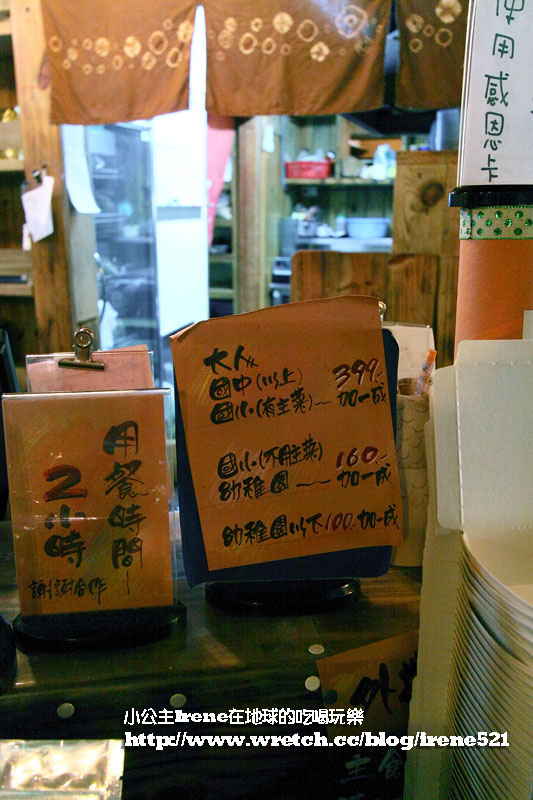 使用感恩卡
大人
國中(以上) 399.
國小(有主菜)~ 加一成
國小(不用主菜) 160.
幼稚園 ~ 加一成
幼稚園以下100.加一成
用餐時間~
2小時
謝謝合作
外
主 食
小公主Irene在地球的吃喝玩樂
http://www.wretch.cc/blog/irene521